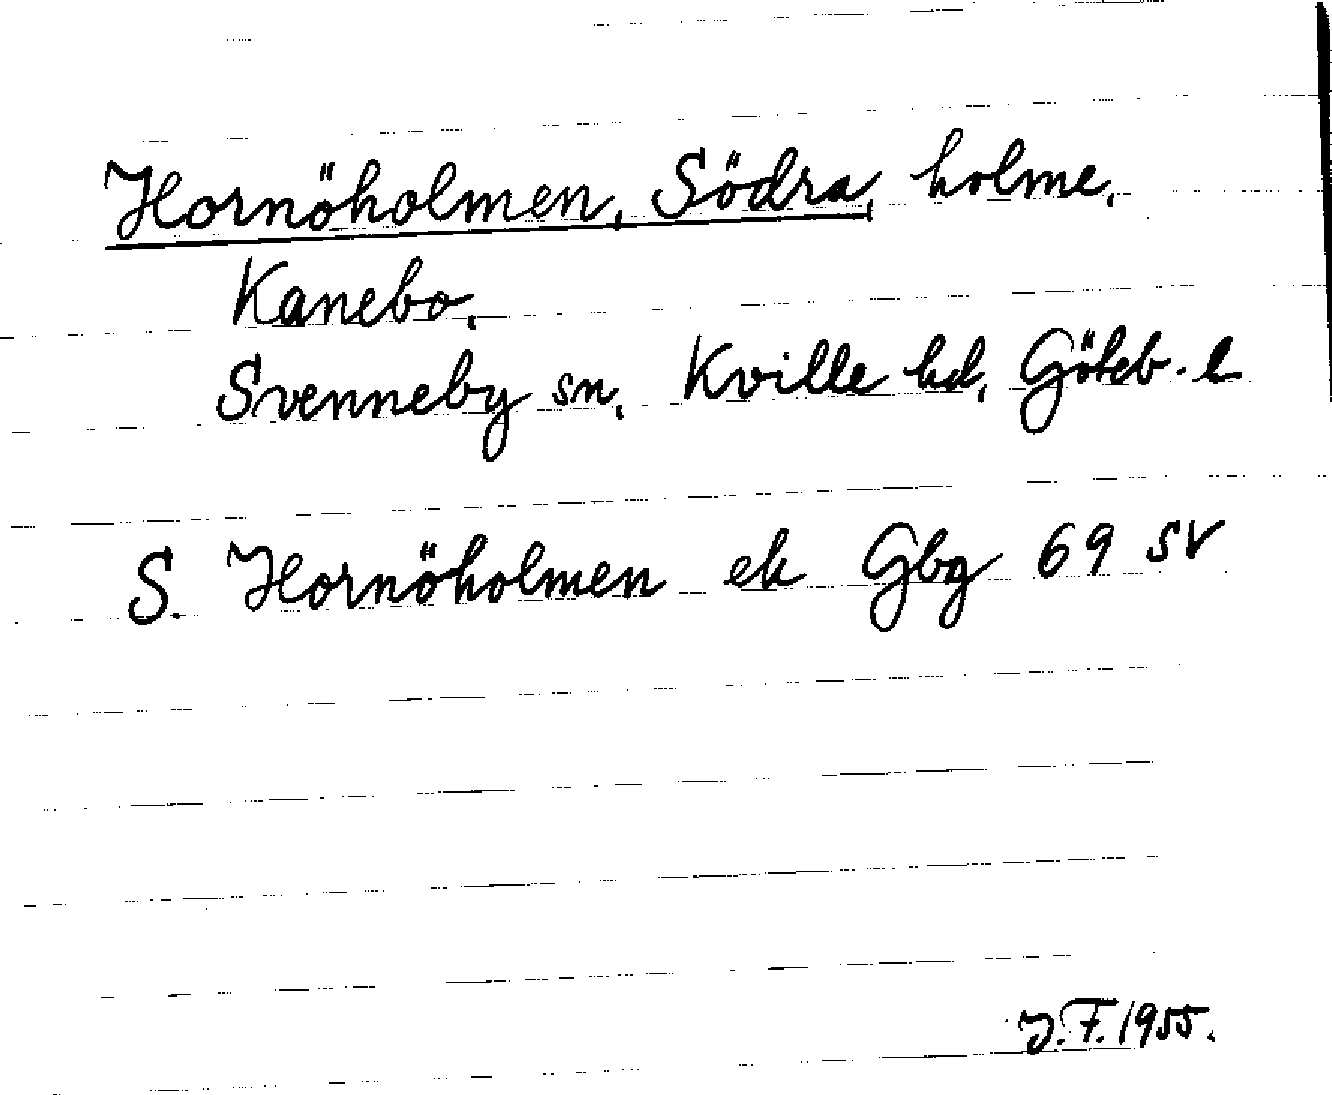 Hornöholmen, Södra, holme,
Kanebo,
Svenneby sn, Kville hd, Göteb. l
S. Hornöholmen ek Gbg 69 SV
J.F. 1955.